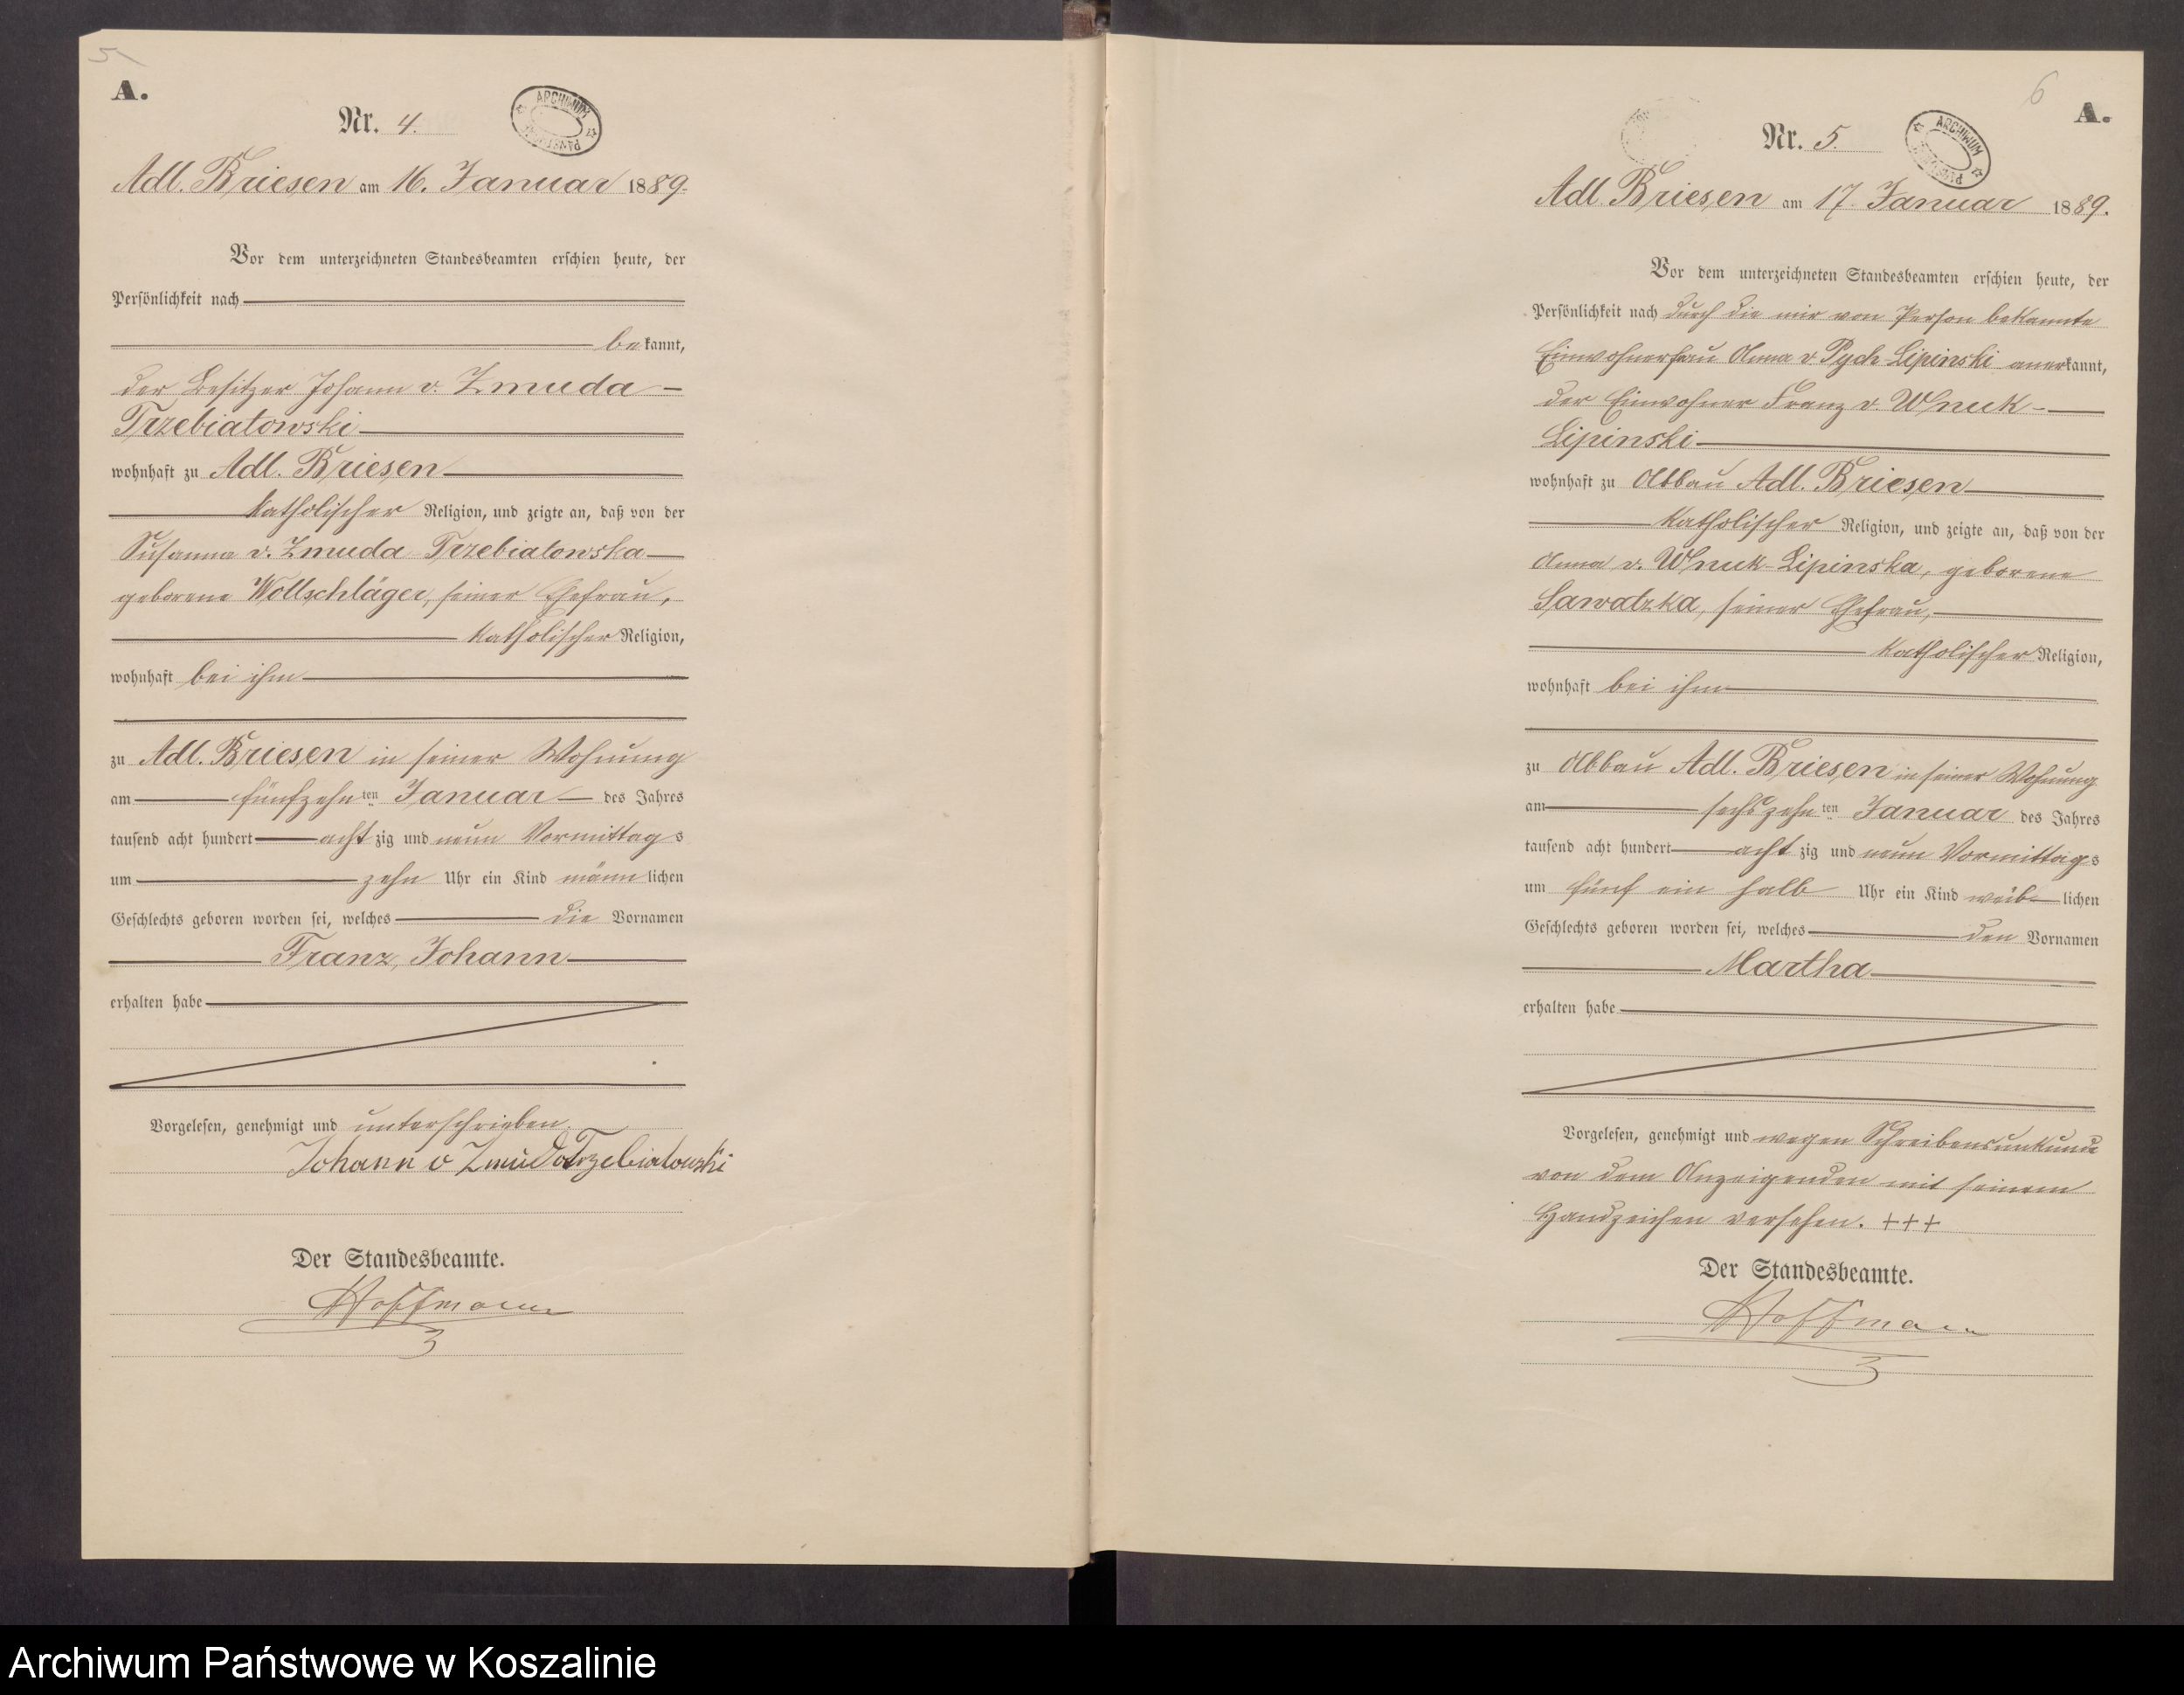 5
A.
Nr. 4.
ARCHIWUM
Adl. Briesen am 16. Januar 1889.
Vor dem unterzeichneten Standesbeamten erschien heute, der
Persönlichkeit nach
bekannt,
der Besitzer Johann v. Zmuda-
Trzebiatowski
wohnhaft zu Adl. Briesen
katholischer Religion, und zeigte an, daß von der
Susanna v. Zmuda Trzebiatowska
geborene Wollschläger, seiner Ehefrau,
katholischer Religion,
wohnhaft bei ihm
zu Adl. Briesen in seiner Wohnung
am fünfzehn ten Januar des Jahres
tausend acht hundert acht zig und neun Vormittags
um zehn Uhr ein Kind männlichen
Geschlechts geboren worden sei, welches die Vornamen
Franz, Johann
erhalten habe
Vorgelesen, genehmigt und unterschrieben.
Johann v Zmuda Trzebiatowski
Der Standesbeamte.
Hoffmann
6
A.
Nr. 5.
ARCHIWUM
Adl. Briesen am 17. Januar 1889.
Vor dem unterzeichneten Standesbeamten erschien heute, der
Persönlichkeit nach durch die mir von Person bekannte
Einwohnerfrau Anna v Pych-Lipinski anerkannt,
der Einwohner Franz v. Wnuk-
Lipinski
wohnhaft zu Abbau Adl. Briesen
katholischer Religion, und zeigte an, daß von der
Anna v. Wnuk-Lipinska, geborene
Sawatzka, seiner Ehefrau,
katholischer Religion,
wohnhaft bei ihm
zu Abbau Adl. Briesen in seiner Wohnung
am sechszehn ten Januar des Jahres
tausend acht hundert acht zig und neun Vormittags
um fünf ein halb Uhr ein Kind weiblichen
Geschlechts geboren worden sei, welches den Vornamen
Martha
erhalten habe
Vorgelesen, genehmigt und wegen Schreibensunkunde
von dem Anzeigenden mit seinem
Handzeichen versehen. +++
Der Standesbeamte.
Hoffmann
Archiwum Państwowe w Koszalinie